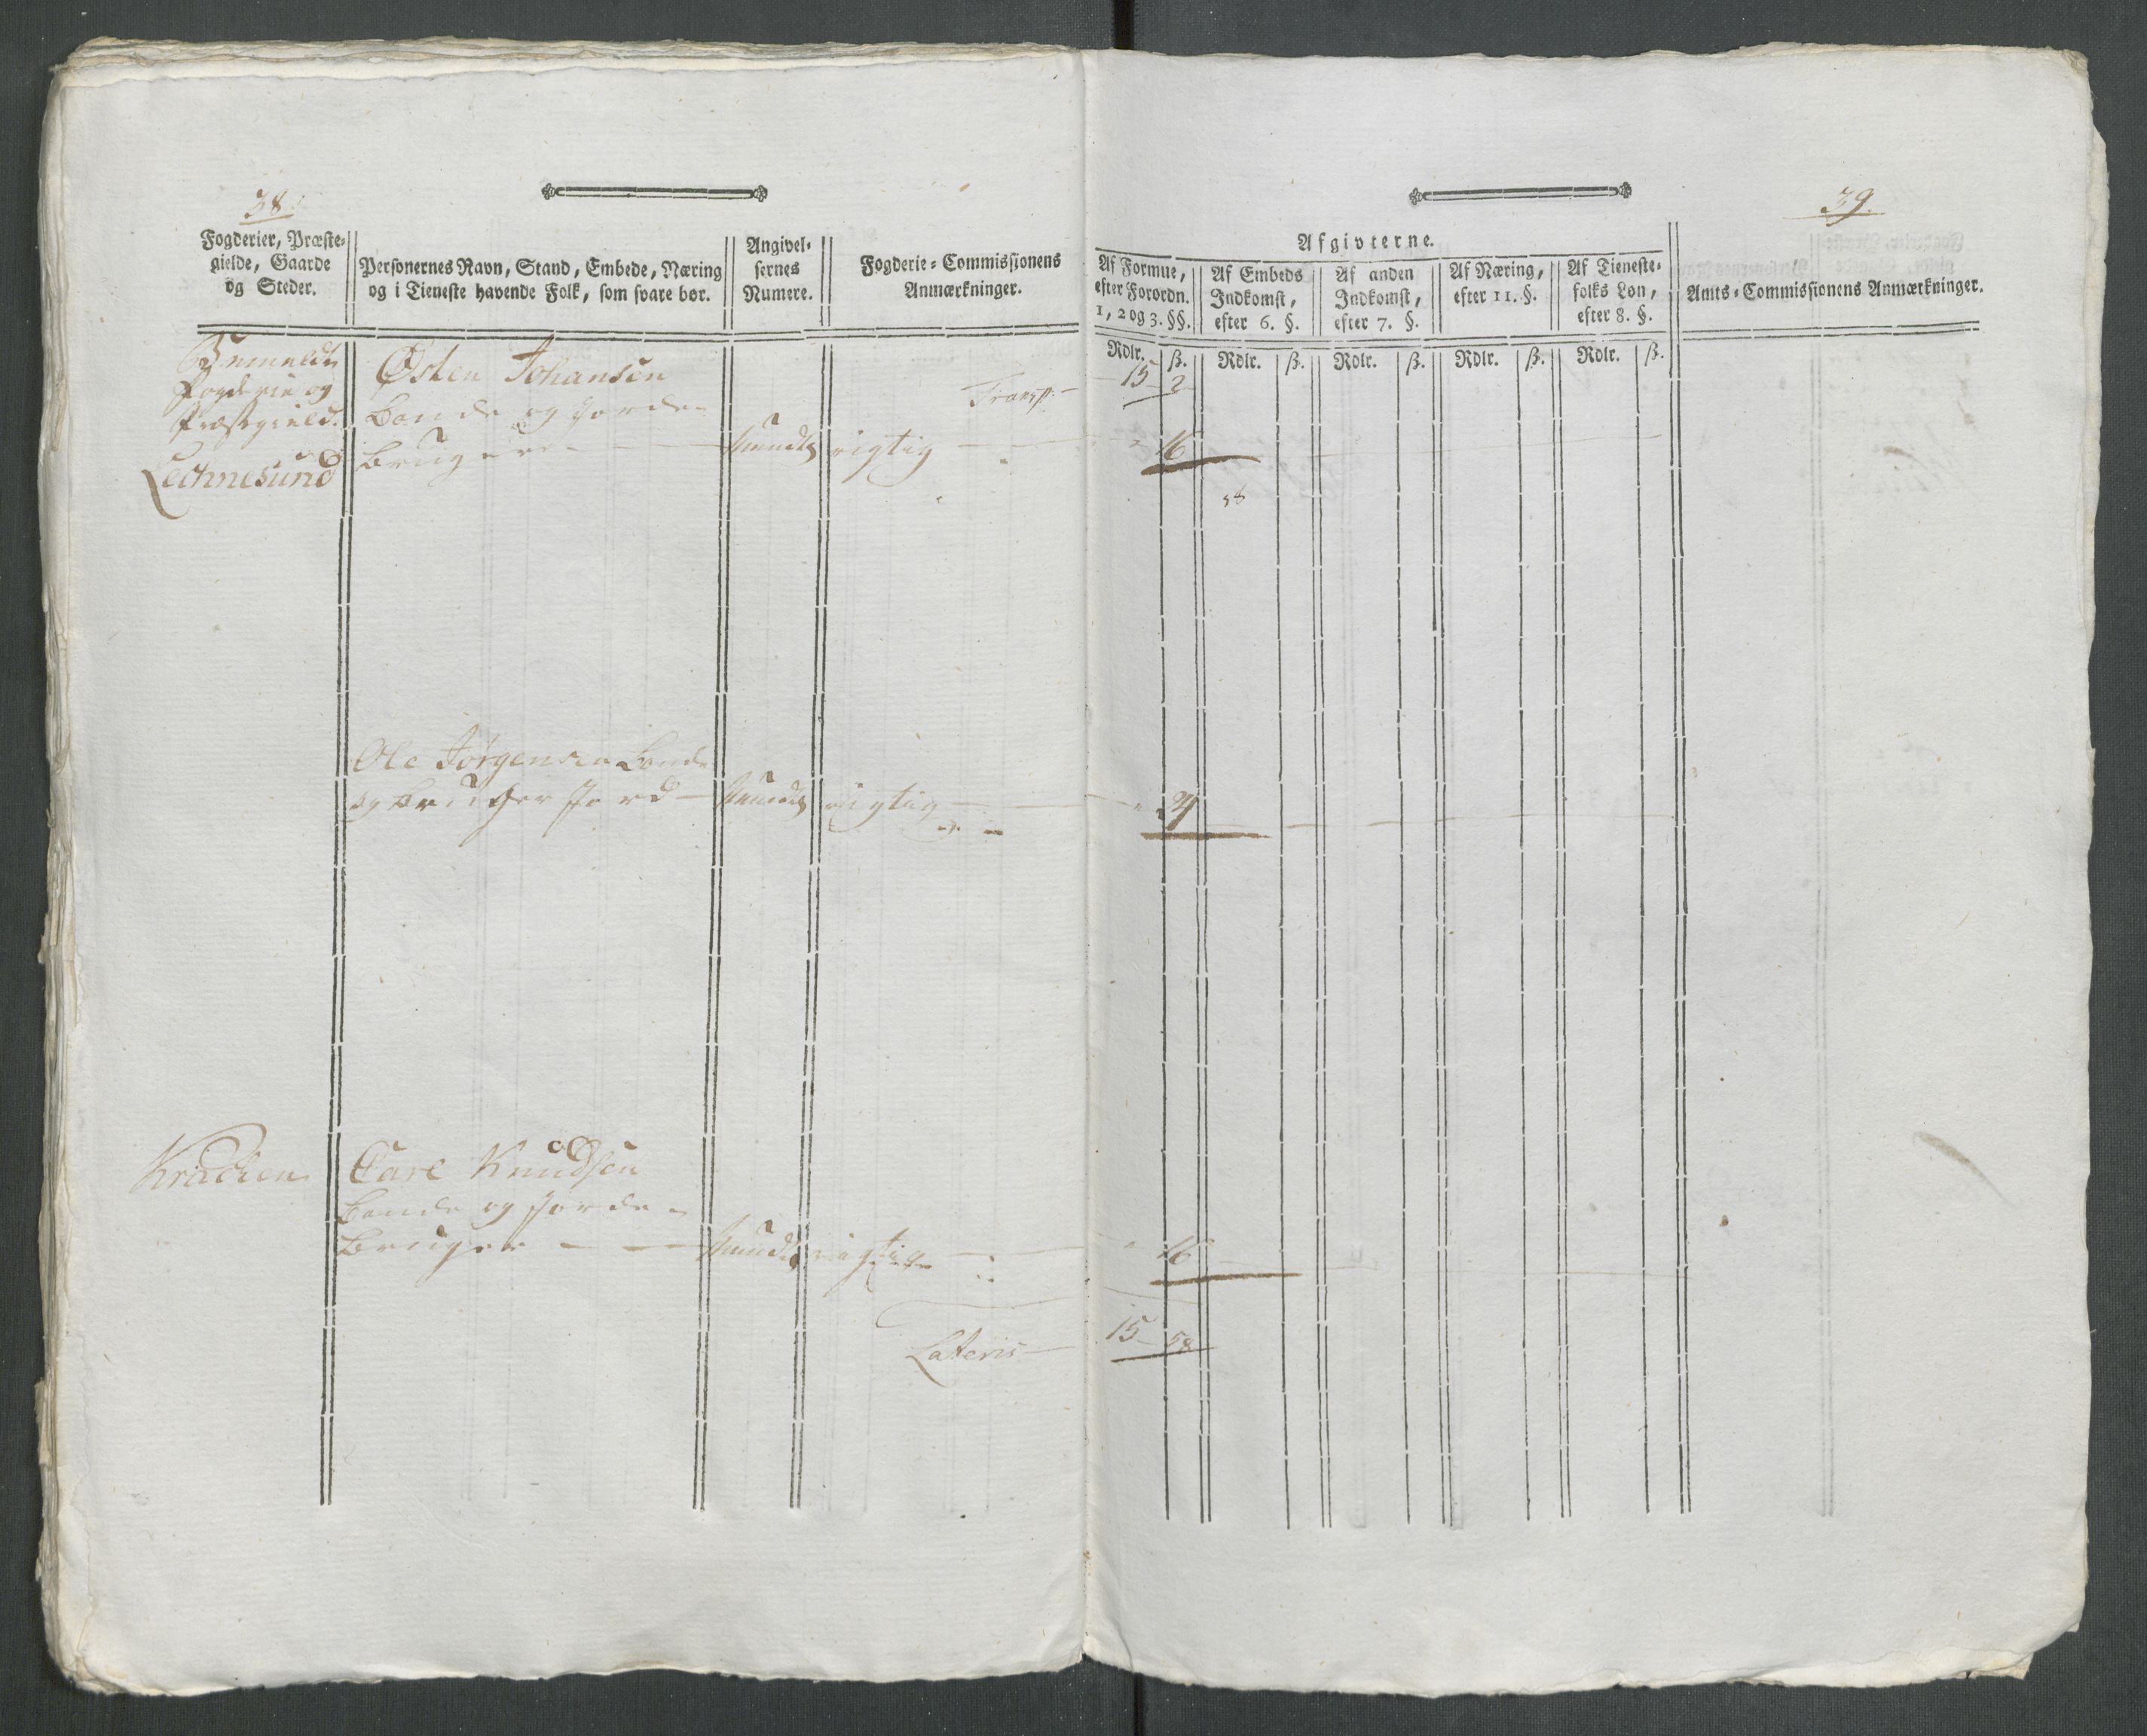 38.
Fogderier, Præste-
gielde, Gaarde
og Steder.
Personernes Navn, Stand, Embede, Næring
og i Tieneste havende Folk, som svare bør.
Angivel-
sernes
Numere.
Fogderie-Commissionens
Anmærkninger.
Bemeldte
Fogderie og
Præstegield.
Østen Johansen
Bonde og Jorde-
bruger — — mundtl. rigtig — —
Transp. —
Ole Jørgensen Bonde
og bruger Jord — mundtl. rigtig — —
Carl Knudsen
Bonde og Jorde-
bruger — — mundtl. rigtig — —
Lateris —
39.
Afgivterne.
Af Formue,
efter Forordn.
1, 2 og 3. §§.
Af Embeds
Indkomst,
efter 6. §.
Af anden
Indkomst,
efter 7. §.
Af Næring,
efter 11. §.
Af Tieneste-
folks Løn,
efter 8. §.
Amts-Commissionens Anmærkninger.
Rdlr. ß. Rdlr. ß. Rdlr. ß. Rdlr. ß. Rdlr. ß.
15 - 2
" 16
58
" 16
15 - 58